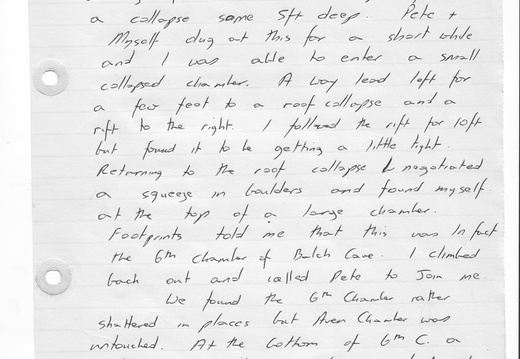 a collapse some 5ft deep. Pete +
Myself dug at this for a short while
and I was able to enter a small
collapsed chamber. A way lead left for
a few feet to a roof collapse and a
rift to the right. I followed the rift for 10ft
but found it to be getting a little tight.
Returning to the roof collapse I negotiated
a squeeze in boulders and found myself
at the top of a large chamber.
Footprints told me that this was In fact
the 6th chamber of Balch Cave. I climbed
back out and called Pete to Join me
We found the 6th Chamber rather
shattered in places but Aven Chamber was
untouched. At the bottom of 6th C. a